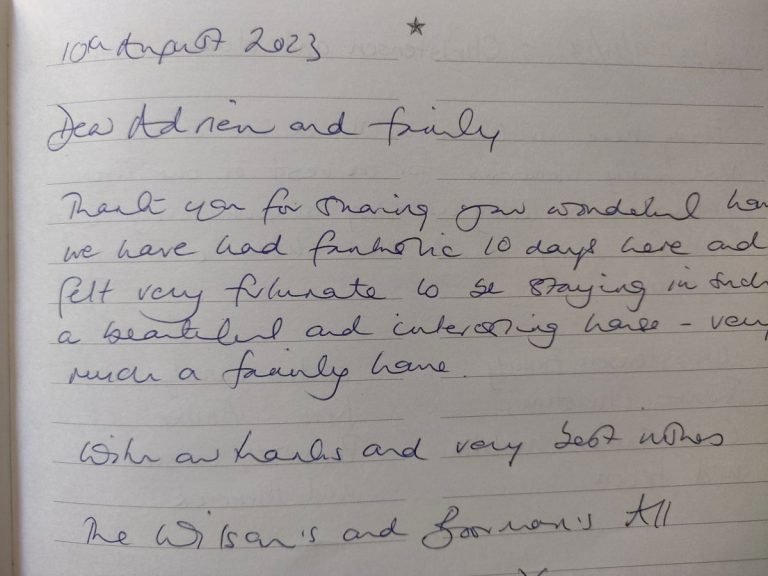 10th August 2023
Dear Adrien and family
Thank you for sharing your wonderful
we have had fantastic 10 days here and
felt very fortunate to be staying in such
a beautiful and interesting house - very
much a family home.
With our thanks and very best wishes
The Wilson's and Boorman's All